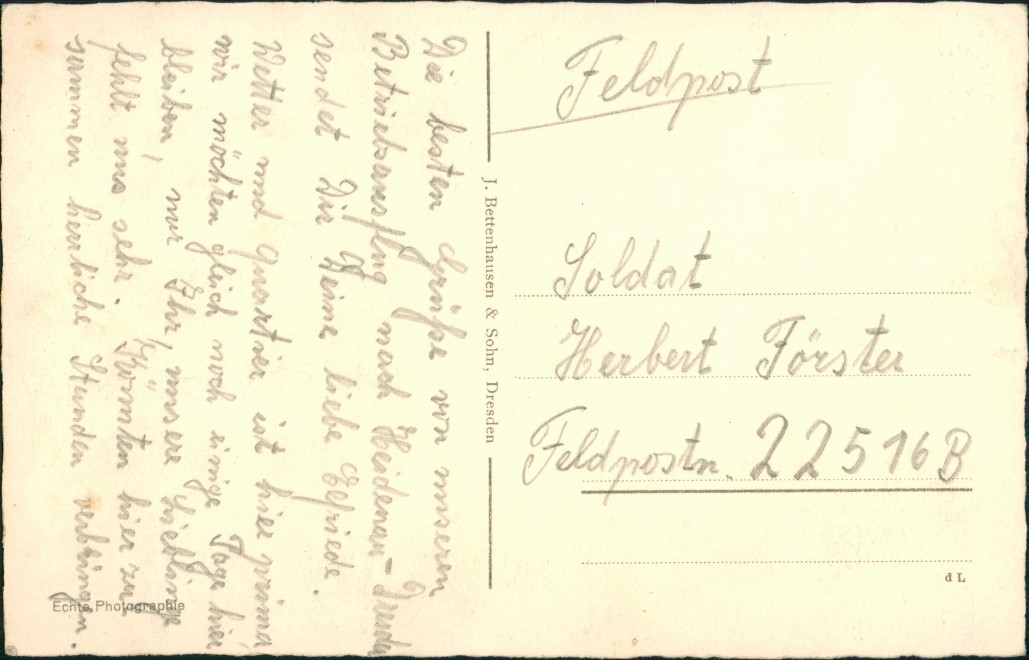 Die besten Grüße von unserem
Betriebsausflug nach Heidenau-Dresden
sendet Dir Deine liebe Elfriede.
Wetter und Quartier ist hier prima
wir möchten gleich noch einige Tage hier
bleiben, nur Ihr, unsere Lieblinge
fehlt uns sehr. Könnten hier zu
sammen herrliche Stunden verbringen.
J. Bettenhausen & Sohn, Dresden
Feldpost
Soldat
Herbert Förster
Feldpostn. 22516B
d L
Echte Photographie